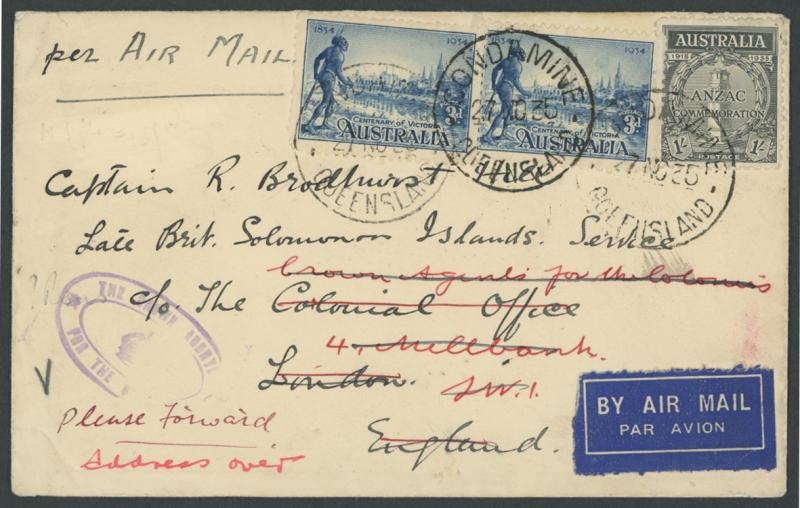 per AIR MAIL
1834 1934
CENTENARY OF VICTORIA
3D
AUSTRALIA
1834 1934
CENTENARY OF VICTORIA
3D
AUSTRALIA
AUSTRALIA
1915 1935
ANZAC
COMMEMORATION
1/- 1/-
POSTAGE
27 NO 35
QUEENSLAND
CONDAMINE
27 NO 35
QUEENSLAND
27 NO 35
QUEENSLAND
Captain R. Brodhurst
Late Brit. Solomonon Islands. Service
Crown Agents for the Colonies
c/o. The Colonial Office
4, Millbank.
London. S.W.1.
England.
THE CROWN
FOR THE
Please Forward
Address over
BY AIR MAIL
PAR AVION